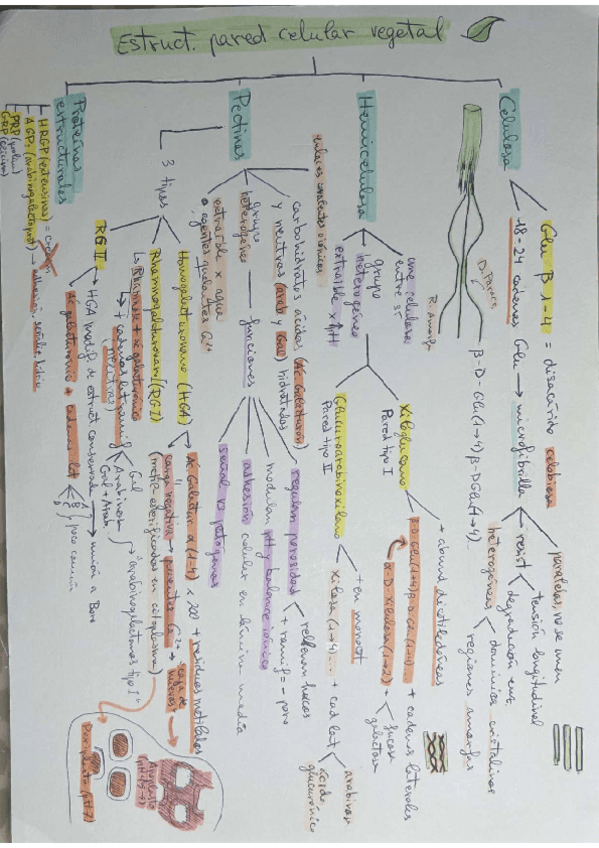 Estruct. pared celular vegetal
Celulosa
Glu β 1-4 = disacárido celobiosa
18-24 cadenas Glu → microfibrilla
paralelas, no se unen
resist
tensión longitudinal
degradación enz.
heterogéneas
dominios cristalinos
regiones amorfas
β-D-Glu(1→4)β-DGlu(1→4)...
Hemicelulosa
une celulosa
entre sí
grupo
heterogéneo
extraíble x
Xiloglucano
Pared tipo I
+ abund dicotiledóneas
β-D-Glu(1→4)β-D-Glu(1→4)
+ cadenas laterales
α-D-Xilulosa(1→2) +
fucosa
galactosa
Glucuronoarabinoxilano
Pared tipo II
+ en monocot
Xilosa(1→4)... + cad lat
arabinosa
ácido
glucurónico
Pectinas
carbohidratos ácidos (Ác. Galacturón)
y neutros (arab y Gal) hidratados
grupo
heterogéneo
extraíble x agua
o agentes quelantes Ca²⁺
funciones
regulan porosidad
rellenan huecos
+ ramif = - poro
modulan pH y balance iónico
adhesión celular en lámina media
señal vs patógenos
3 tipos
Homogalacturonano (HGA)
Ác Galactur α(1-4) x 200 + residuos metilados
carga negativa → puentes Ca²⁺ → caja de
huevos
(metil-esterificados en citoplasma)
Rhamnogalacturonano I (RG I)
Rhamnosa + ác galacturónico
+ cadenas laterales
(neutras)
Gal
Arabinosa
Gal + Arab
→ arabinogalactanos tipo I
RG II
HGA modif. de estruct conservada → unión a Boro
Ác galacturónico + cadenas lat
poco común
Apoplasto
Proteínas
estructurales
HRGP (extensinas)
AGPs (arabinogalactoprot) → adhesión, señaliz, hidric
PRP (prolina)
GRP (glicina)